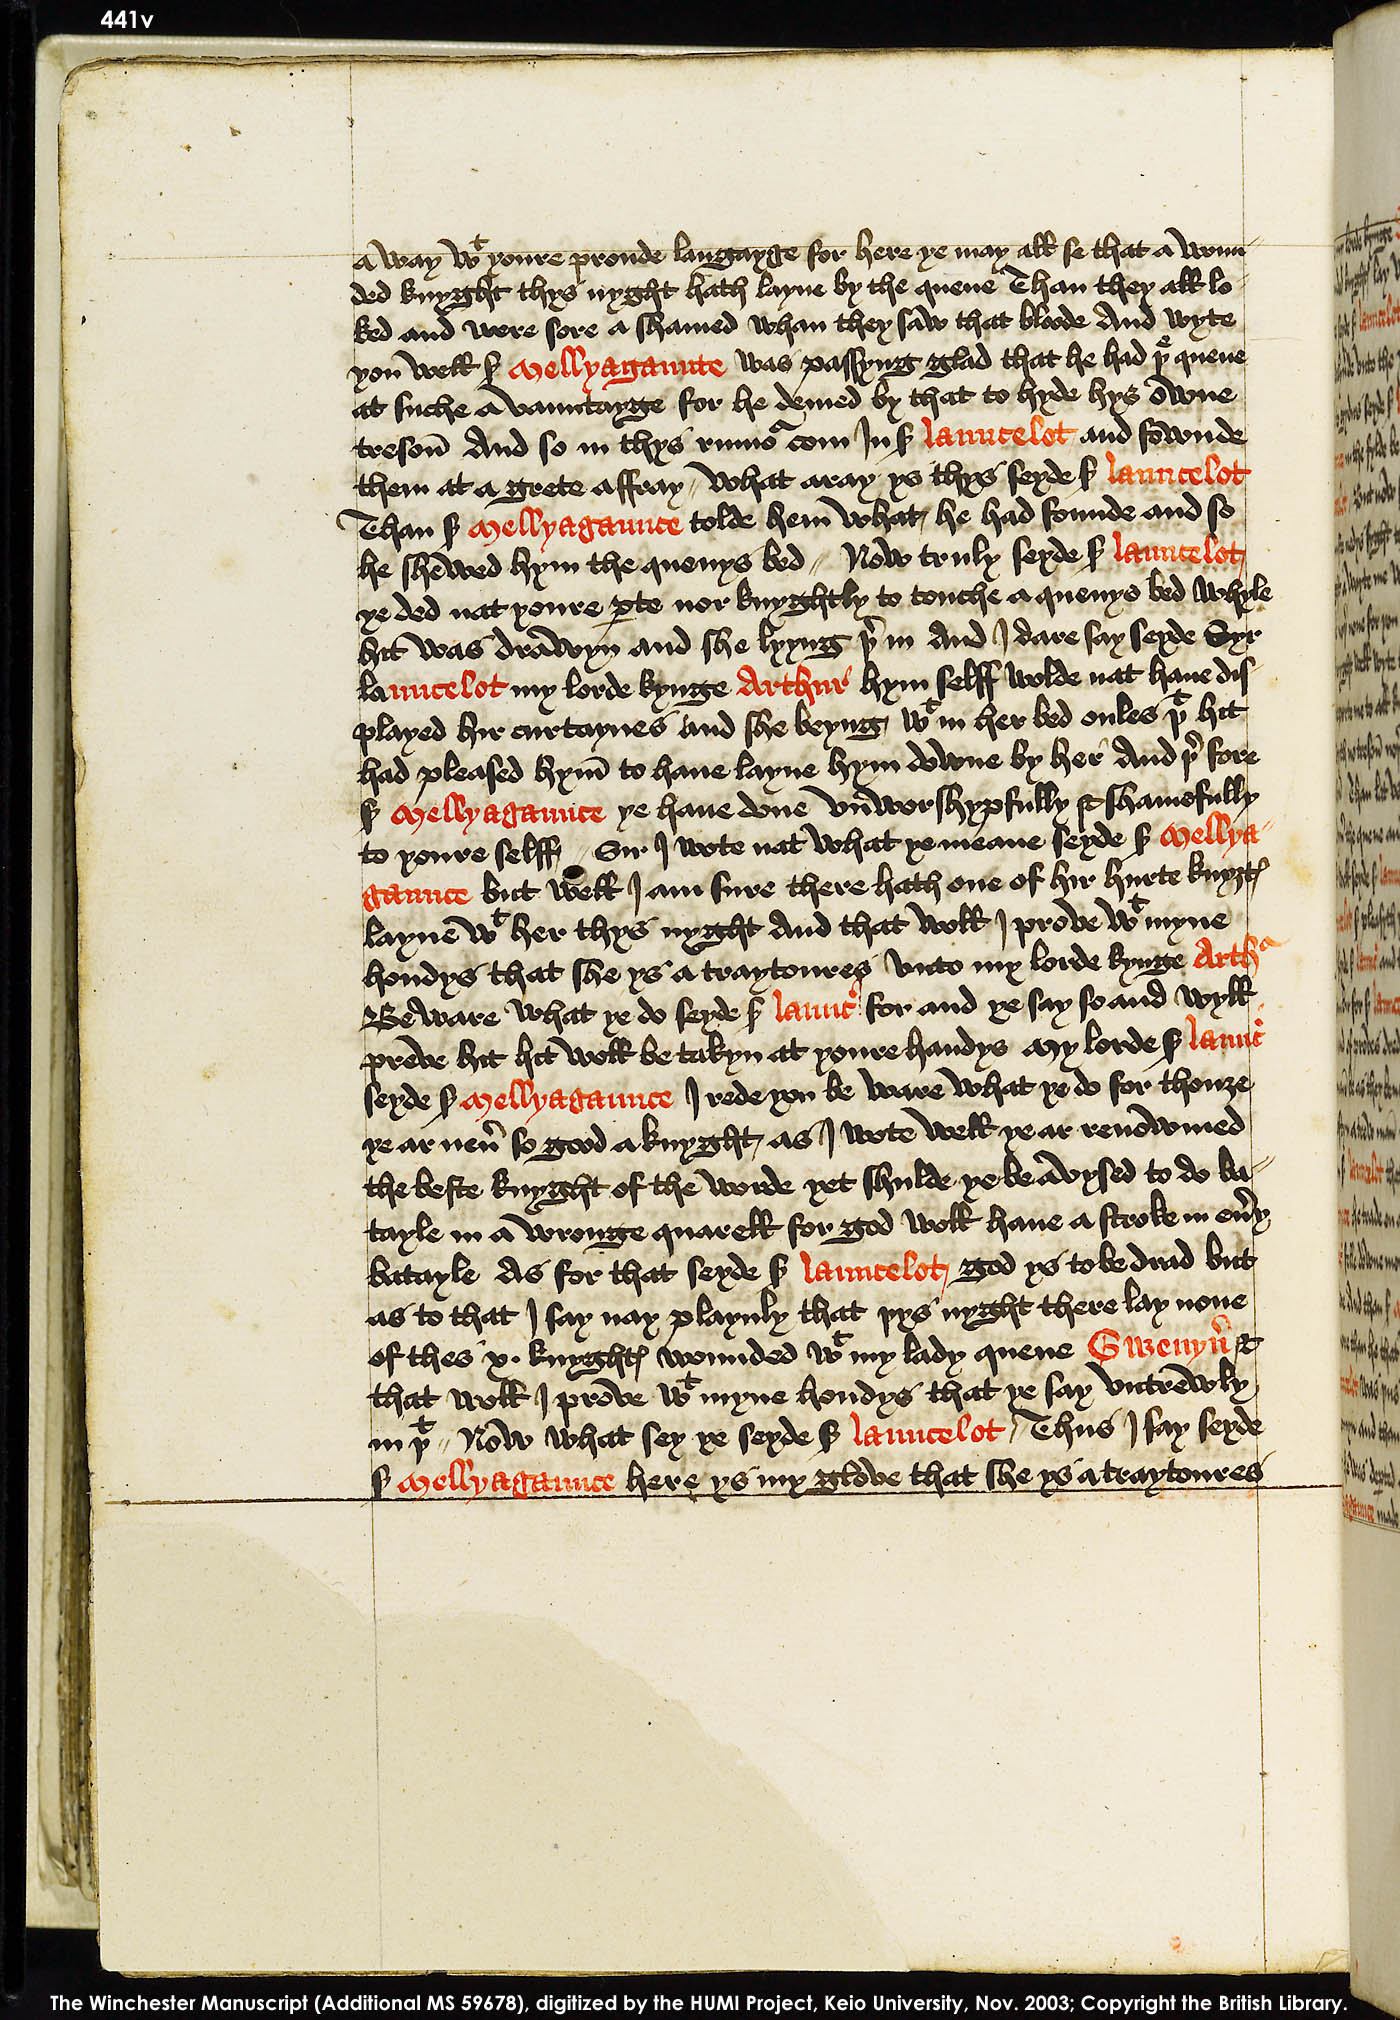 441v
a way wᵗ youre proude langayge for here ye may all se that a woun
ded knyght thys nyght hath layne by the quene Than they all lo
ked and were sore a shamed whan they saw that bloode And wyte
you well Ꝭ Mellyagaunte was passyng glad that he had þᵉ quene
at suche a vauntayge for he demed by that to hyde hys owne
tresoun̄ And so in thys rumoᵃ com In Ꝭ launcelot and fownde
them at a grete affray // What aray ys thys seyde Ꝭ launcelot
Than Ꝭ Mellyagaunce tolde hem what he had founde and so
he shewed hym the quenys bed // Now truly seyde Ꝭ launcelot
ye ded nat youre ꝑte nor knyghtly to touche a quenys bed whyle
hit was drawyn and she lyyng þ̄ in And I dare say seyde Syr
launcelot my lorde kynge Arthur hym selff wolde nat haue dis
played hir curtaynes and she beyng wᵗ in her bed onles þᵗ hit
had pleased hym̄ to haue layne hym downe by her And þ̄ fore
Ꝭ Mellyagaunce ye haue done vnworshypfully & shamefully
to youre selff // Sir I wote nat what ye meane seyde Ꝭ Mellya
gaunce but well I am sure there hath one of hir hurte knyȝtꝭ
layne wᵗ her thys nyght And that woll I prove wᵗ myne
hondys that she ys a traytoures vnto my lorde kynge Arthᵃ
Beware what ye do seyde Ꝭ launc̉ for and ye say so and wyll
preve hit hit woll be takyn at youre handys My lorde Ꝭ launc̉
seyde Ꝭ Mellyagaunce I rede you be ware what ye do for thouȝe
ye ar neủ so good a knyght as I wote well ye ar renowmed
the beste knyght of the worde yet shulde ye be avysed to do ba
tayle in a wronge quarell for god woll haue a stroke in eủy
batayle As for that seyde Ꝭ launcelot god ys to be drad but
as to that I say nay playnly that þys nyght there lay none
of thes x. knyghtꝭ wounded wᵗ my lady quene Gwenyủ &
that woll I prove wᵗ myne hondys that ye say vntrewly
in þᵗ // Now what sey ye seyde Ꝭ launcelot / Thus I say seyde
Ꝭ Mellyagaunce here ys my glove that she ys a traytoures
The Winchester Manuscript (Additional MS 59678), digitized by the HUMI Project, Keio University, Nov. 2003; Copyright the British Library.